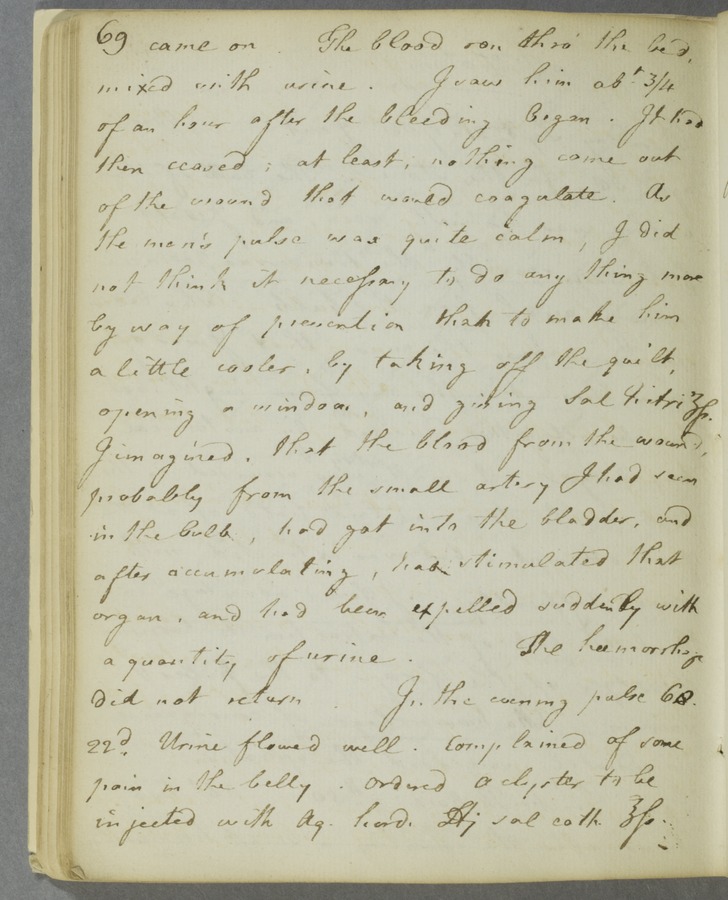 69 came on. The blood ran thro' the bed,
mixed with urine. I saw him abt. 3/4
of an hour after the bleeding began. It had
then ceased; at least, nothing came out
of the wound that would coagulate. As
the man's pulse was quite calm, I did
not think it necessary to do any thing more
by way of prevention than to make him
a little cooler, by taking off the quilt,
opening a window, and giving Sal Nitri ℨſs.
I imagined, that the blood from the wound,
probably from the small artery I had seen
in the bulb, had got into the bladder, and
after accumulating, had stimulated that
organ, and had been expelled suddenly with
a quantity of urine. The hæmorrhage
did not return. In the evening pulse 68.
22d. Urine flowed well. Complained of some
pain in the belly. Ordered a clyster to be
injected with Aq. hord. sal cath. ℥ſs.